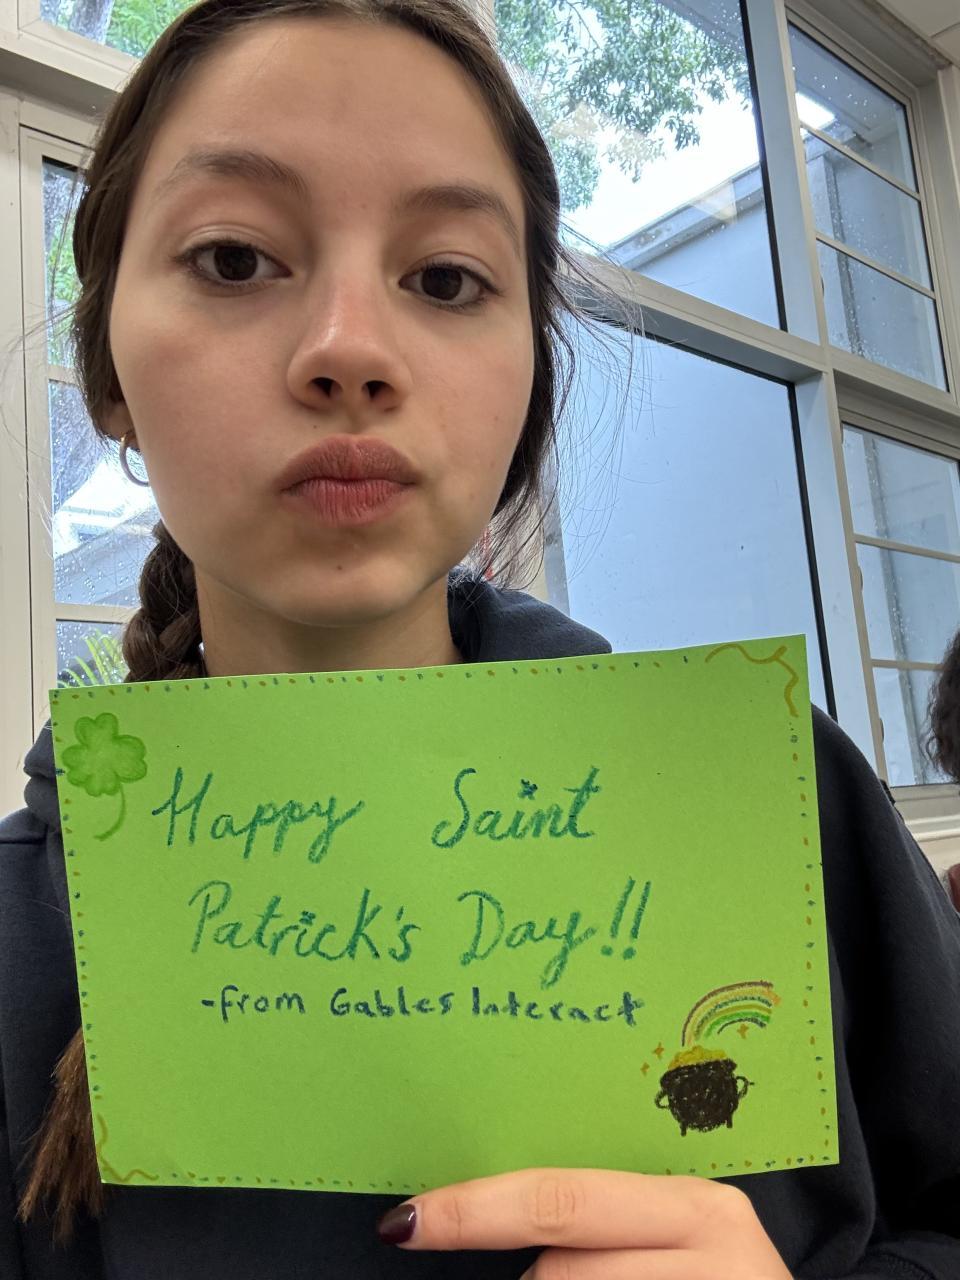 Happy Saint
Patrick's Day!!
-from Gables Interact